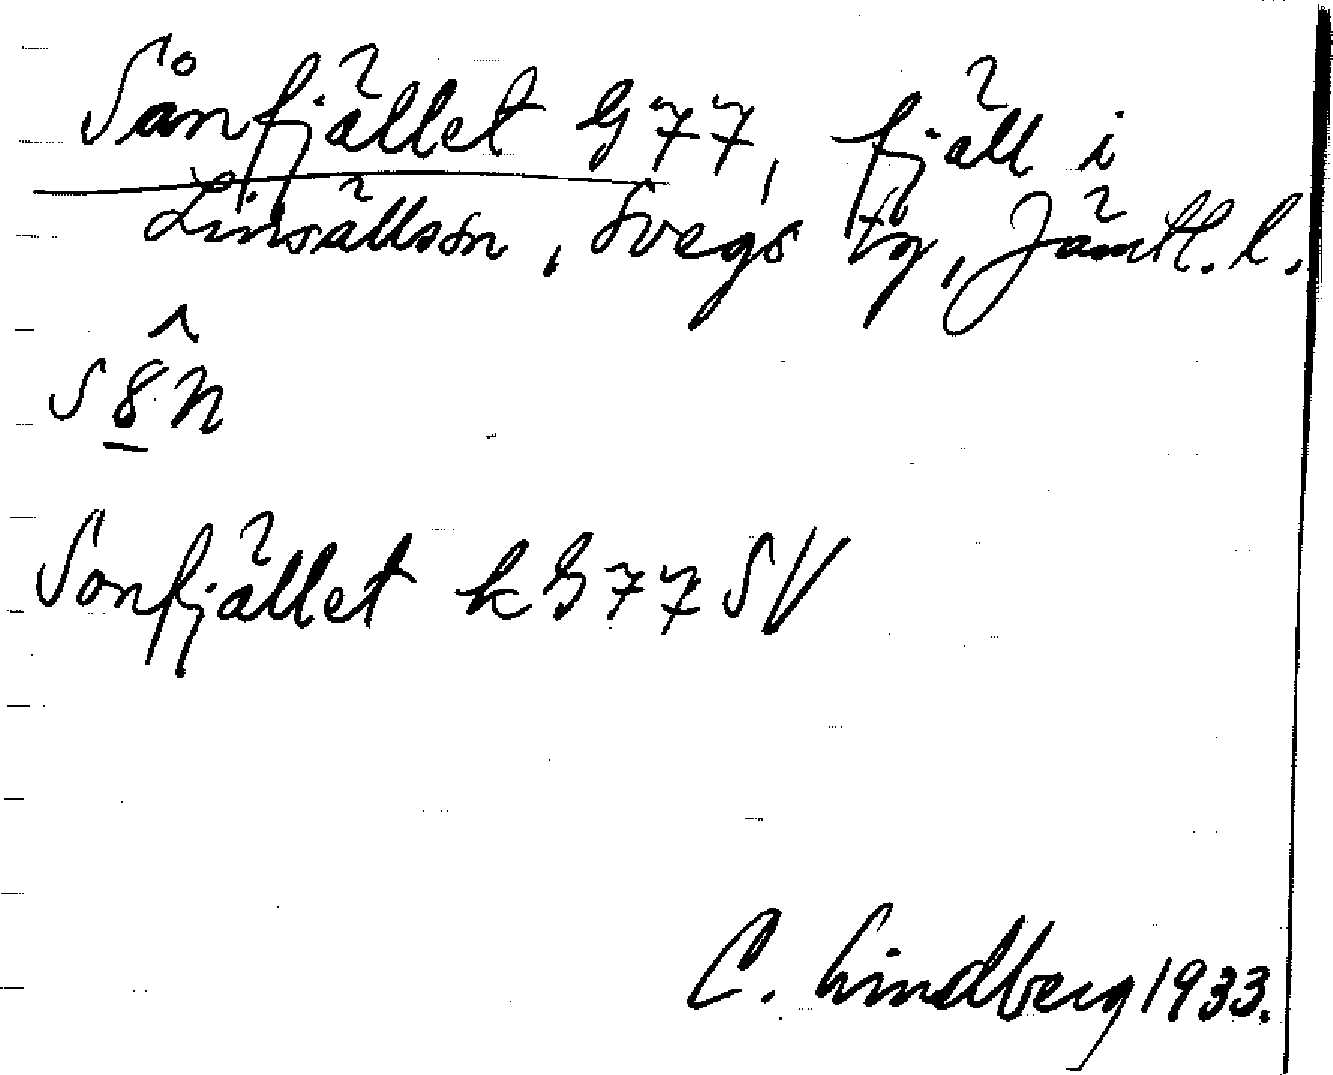 Sånfjället G77, fjäll i
Linsällssn, Svegs tg, Jämtl. l.
s8̂n
Sonfjället k G77 SV
C. Lindberg 1933.